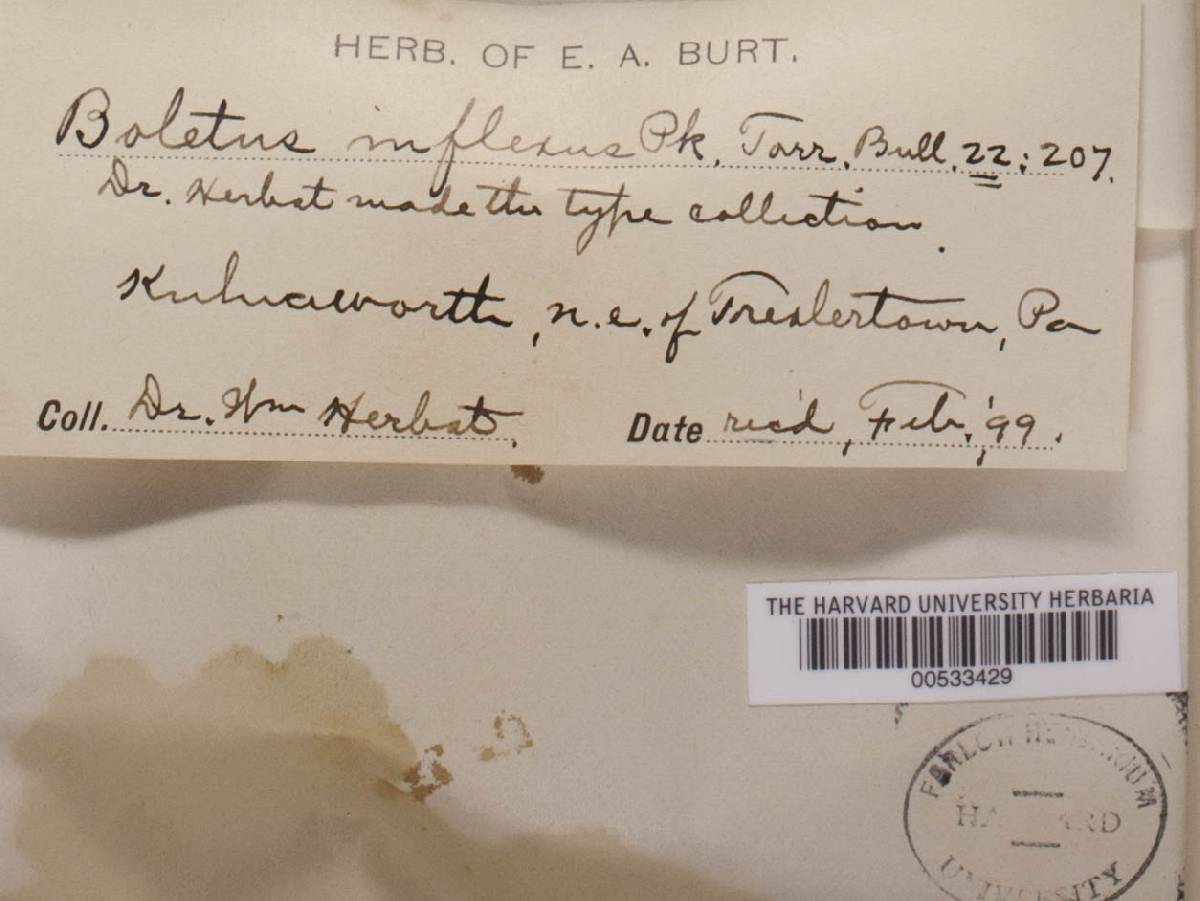 HERB. OF E. A. BURT.
Boletus inflexus Pk. Torr. Bull. 22: 207.
Dr. Herbst made the type collection.
n.e. of Trexlertown, Pa
Coll. Dr. Wm Herbst.
Date rec'd, Feb. '99.
THE HARVARD UNIVERSITY HERBARIA
00533429
FARLOW HERBARIUM
HARVARD
UNIVERSITY